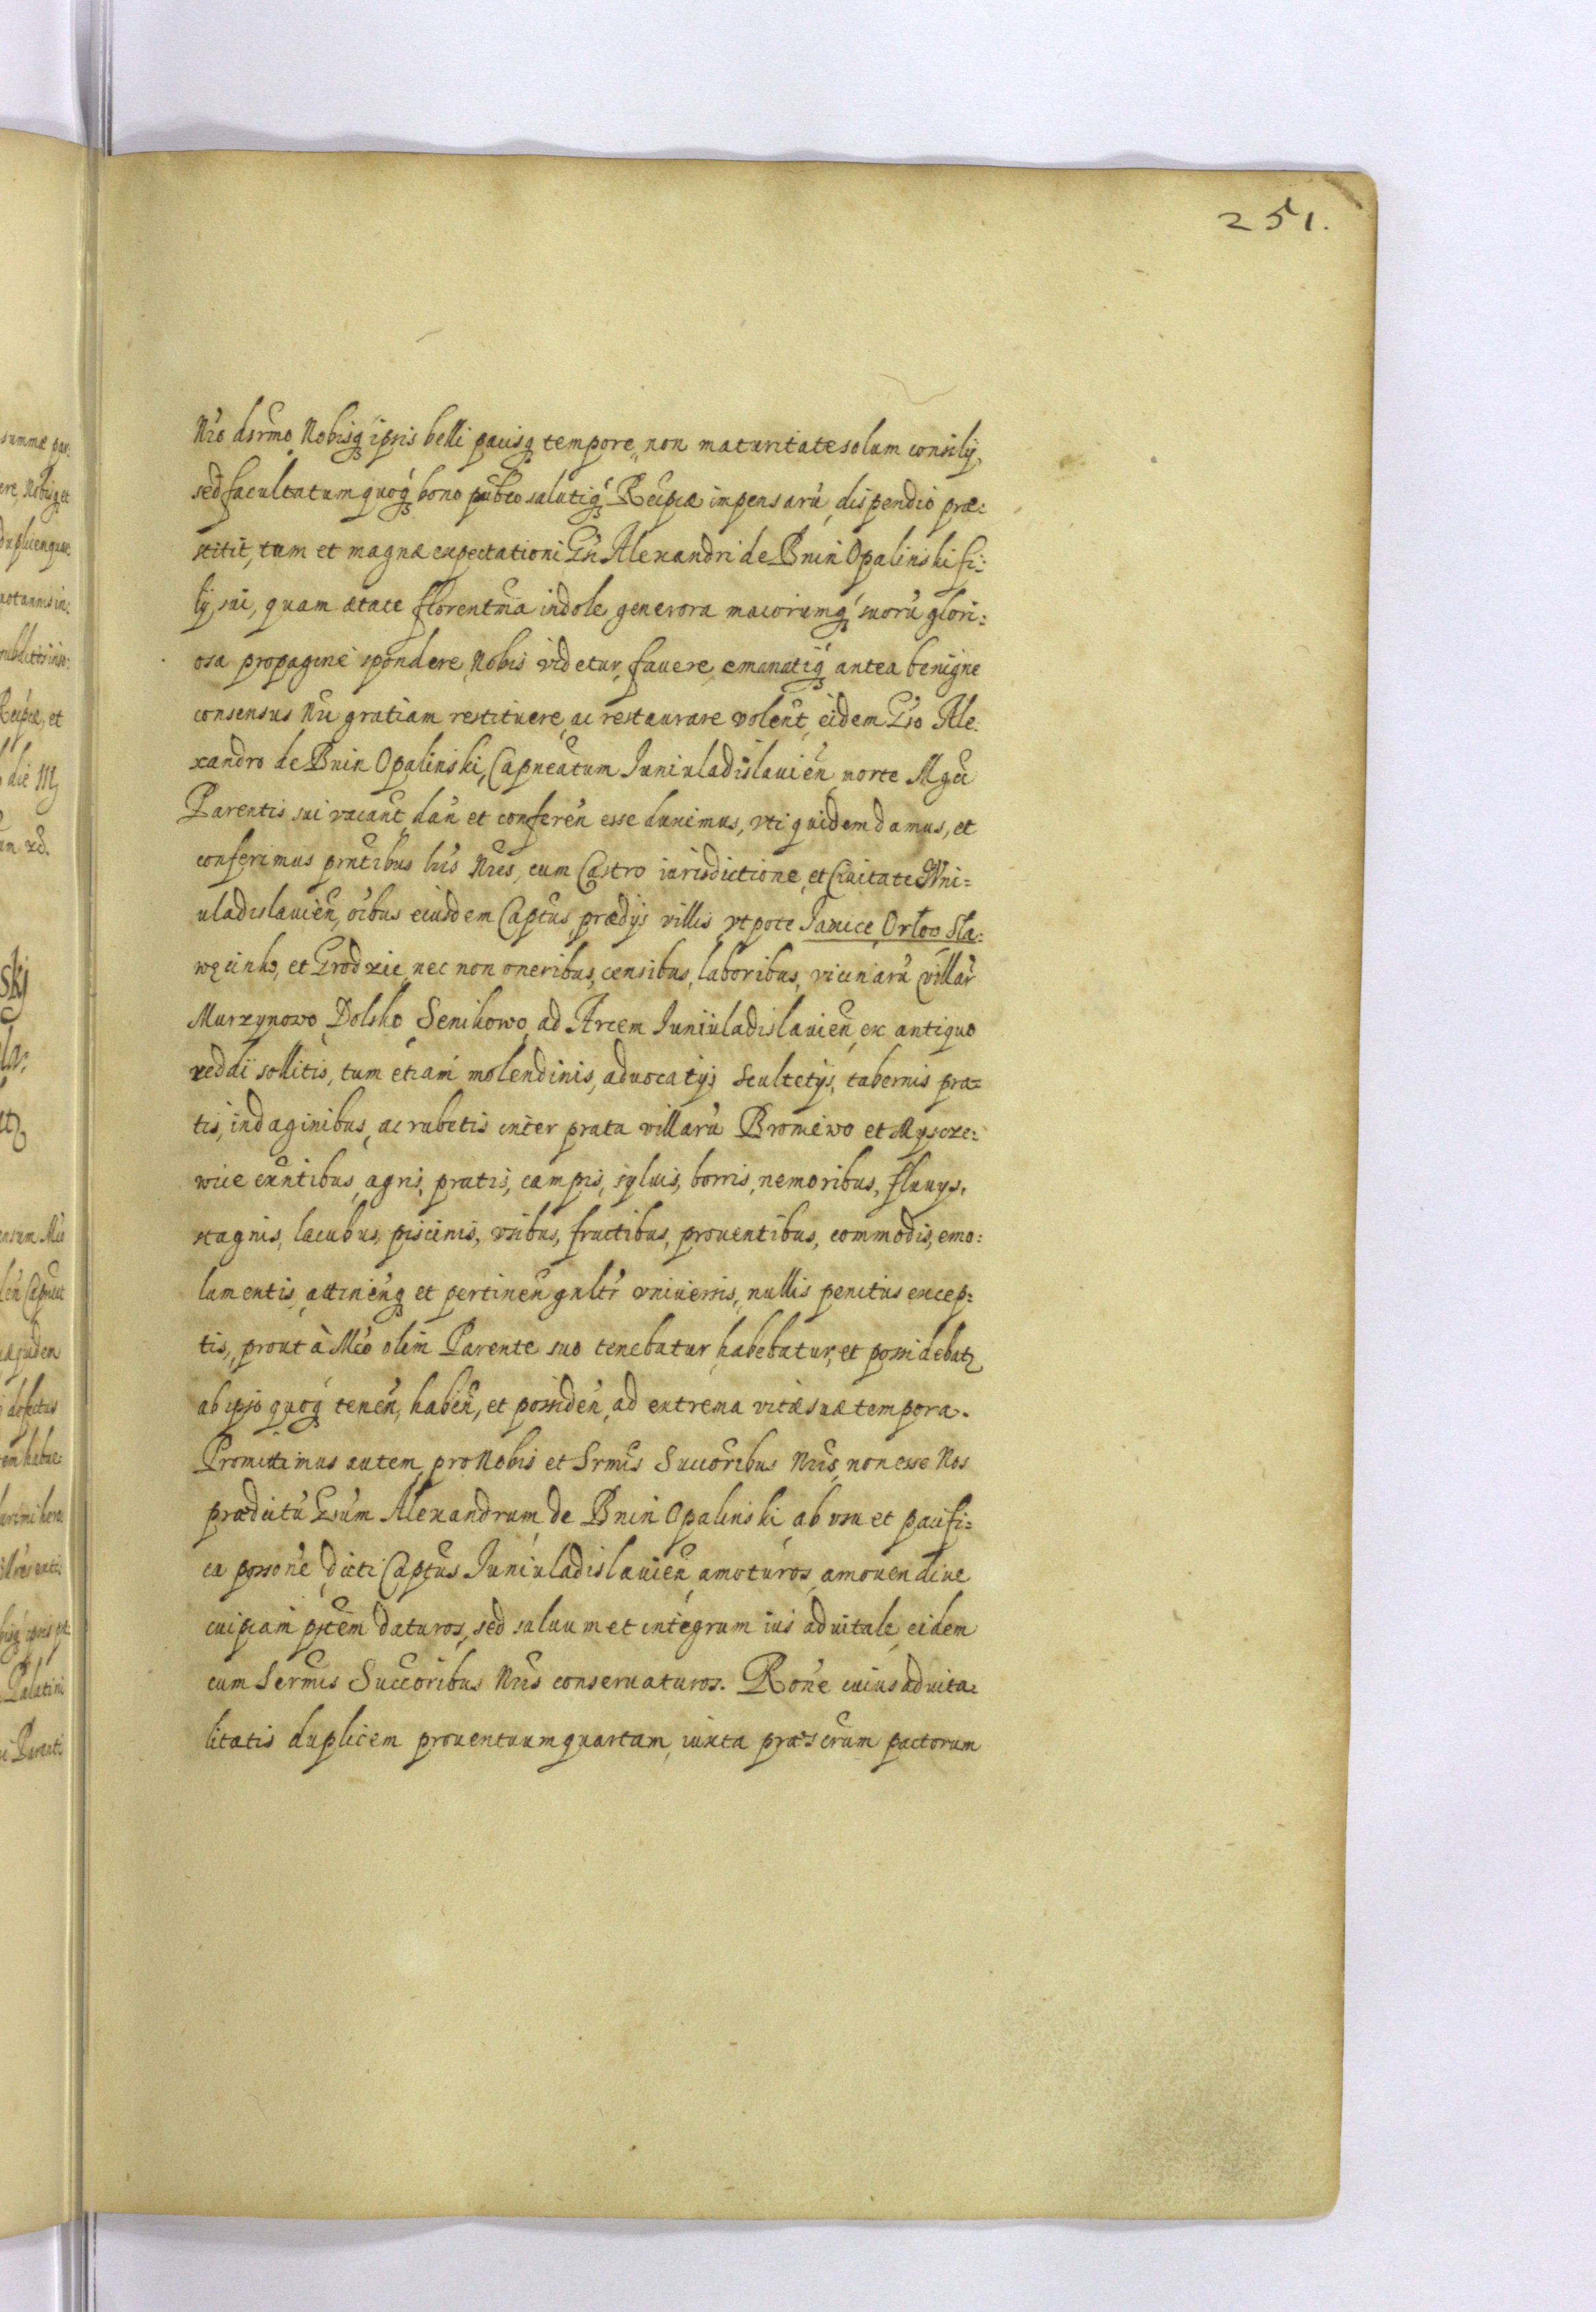 251.
Nro dsrmo Nobisq ipsis belli pacisq tempore, non maturitate solum consilij,
sed facultatum quoq bono publco salutiq Reipcae impensarũ dispendio præ:
stitit, tum et magnæ expectationi Gñ Alexandri de Bnin Opalinski fi:
lij sui, quam ætate florentma indole generosa maiorumq suorũ glori:
osa propagine spondere Nobis videtur, favere, emanatiq antea benigne
consensus Nri gratiam restituere, ac restaurare volent, eidem Gso Ale:
xandro de Bnin Opalinski, Capneatum Iuniuladislauien morte Mgci
Parentis sui vacant, dan et conferen esse duximus, vti quidem damus, et
conferimus pntibus lris Nris, cum Castro iurisdictione, et Ciuitate Wni=
uladislauien, oibus eiusdem Captus, prædijs villis vt pote Janice, Orłow Sła:
węcinko, et Grodzie, nec non oneribus, censibus, laboribus, viciniarũ villar
Murzynowo, Dolsko Senikowo, ad Arcem Iuniuladislauien, ex antiquo
reddi sollitis, tum etiam molendinis, aduocatijs Scultetijs, tabernis pra=
tis, indaginibus, ac rubetis inter prata villarũ Broniewo et Myscze:
wice exntibus, agris, pratis, campis, syluis, borris, nemoribus, fluuys,
stagnis, lacubus, piscinis, vsibus, fructibus, prouentibus, commodis, emo:
lumentis, attinenq et pertinen gnltr vniuersis, nullis penitus excep:
tis, prout à Mco olim Parente suo tenebatur, habebatur, et possidebatz
ab ipso quoq tenen, haben, et possiden, ad extrema vitæ suæ tempora.
Promittimus autem, pro Nobis et Srmis Succoribus Nris, non esse Nos
prædictũ Gsum Alexandrum de Bnin Opalinski, ab vsu et pacifi:
ca possone, dicti Captus Iuniuladislauien, amoturos, amouendiue
cuipiam ptem daturos, sed saluum et integrum ius aduitale, eidem
cum Sermis Succoribus Nris conseruaturos. Rone cuius aduita:
litatis duplicem prouentuum quartam, iuxta præscrum pactorum